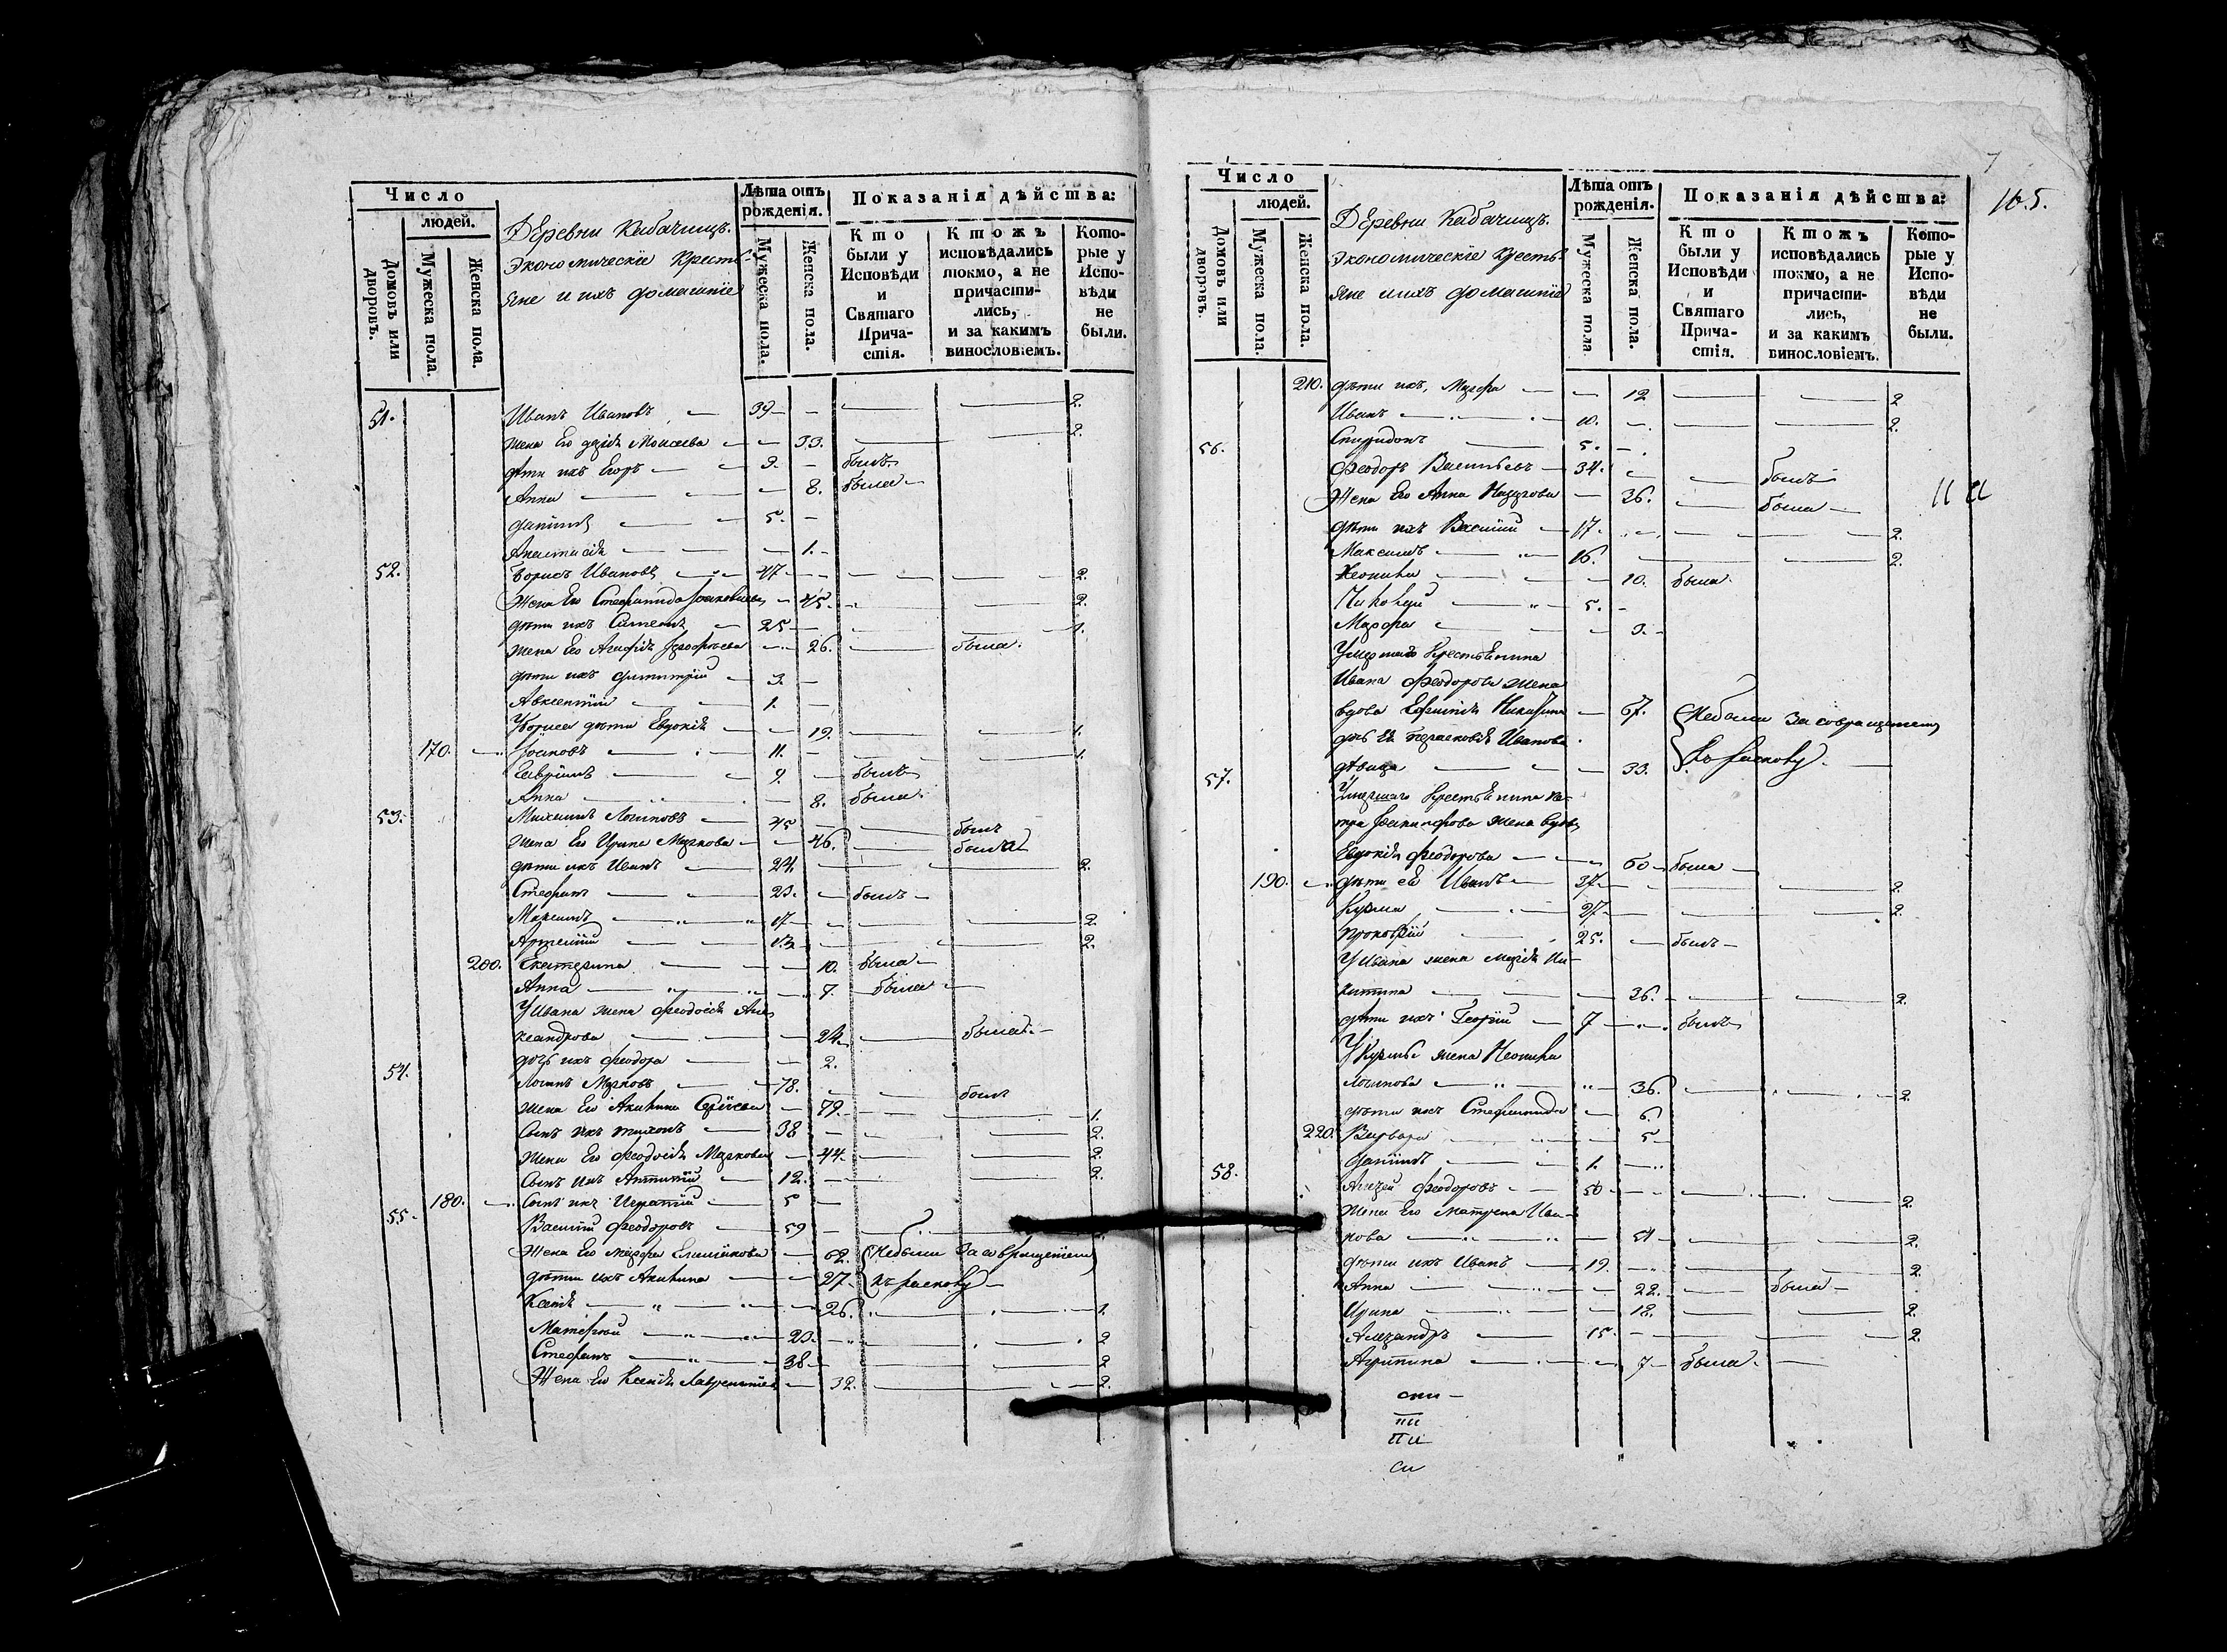 Число
людей.
Домовъ или дворовъ.
Мужеска пола.
Женска пола.
Деревни Кабачищъ.
Экономическіе Кресть-
яне и ихъ домашніе
Лѣта отъ рожденія.
Мужеска пола.
Женска пола.
Показанія дѣйства:
Кто были у Исповѣди и Святаго Прича-стія.
Ктожъ исповѣдались токмо, а не причасти-лись, и за какимъ винословіемъ.
Кото-рые у Испо-вѣди не были.
51. Иванъ Ивановъ 39 2.
жена Его Дарія Моисеева 33. 2.
дѣти ихъ Егоръ 9. былъ
Анна 8. была
Даніилъ 5.
Анастасія 1.
52. Борисъ Ивановъ 47 2.
Жена Его Стефанида 45 2.
дѣти ихъ Симеонъ 25 1.
жена Его Агафія 26. была.
дѣти ихъ Димитрій 3.
Авксентій 1.
У Бориса дѣти Евдокія 19. 1.
170. Іоаковъ 11. 1.
Гавріилъ 9. былъ
Анна 8. была.
53. Михаилъ Логиновъ 45 былъ
жена Его Ирина Маркова 46. была
дѣти ихъ Иванъ 24. 2.
Стефанъ 23. былъ
Максимъ 17 2.
Артемій 13 2.
200. Екатерина 10. была
Анна 7. была
У Ивана жена Феодосія Алек
сандрова 24. была.
дочь ихъ Феодора 2.
54. Логинъ Марковъ 78. былъ
жена Его Акилина Сергіева 79. 1.
Сынъ ихъ Тихонъ 38 2.
жена Его Феодосія Маркова 44. 2.
Сынъ ихъ Антипій 12. 2.
180. Сынъ ихъ Игнатій 5
55. Василій Феодоровъ 59
Жена Его Марфа 62. Небыли За совращеніем
дѣти ихъ Акилина 27. къ расколу
Ксенія 26. 1.
Матфей 23. 2
Стефанъ 38 2
Жена Его Ксенія Лаврентіев 32. 2.
Число
людей.
Домовъ или дворовъ.
Мужеска пола.
Женска пола.
Деревни Кабачищъ.
Экономическіе Кресть-
яне и ихъ домашніе
Лѣта отъ рожденія.
Мужеска пола
Женска пола.
Показанія дѣйства:
Кто были у Исповѣди и Святаго Прича-стія.
Ктожъ исповѣдались токмо, а не причасти-лись, и за какимъ винословіемъ.
Кото-рые у Испо-вѣди не были.
165.
210. дѣти ихъ, Марфа 12 2
Иванъ 10. 2.
Спиридонъ 5.
56. Феодоръ Васильевъ 34. былъ
Жена Его Анна Назарова 36. была
дѣти ихъ Василій 17. 2.
Максимъ 16. 2.
Неонила 10. была.
Николай 5.
Марфа 3.
Умершаго Крестьянина
Ивана Феодорова жена
вдова Евфимія Никитина 67. Небыли За совращеніем
дочь Ея Парасковія Иванова
дѣвица 33. къ расколу
57. Умершаго Крестьянина Пе-
тра жена вдов
Евдокія Феодорова 60 была
190. дѣти Ея Иванъ 37 2.
Кузма 27 2.
Прокофій 25. былъ
У Ивана жена Марія Ни-
китина 36. 2.
дѣти ихъ Георгій 7 былъ
У Кузмы жена Неонила
Логинова 36. 2.
дѣти ихъ Стефанида 6
220. Варвара 5
Даніилъ 1.
58. Андрей Феодоровъ 50 2.
Жена Его Матрена Ива-
нова 51 2.
дѣти ихъ Иванъ 19. 2.
Анна 22. была
Ирина 18. 2.
Александръ 15. 2.
Агрипина 7 была.